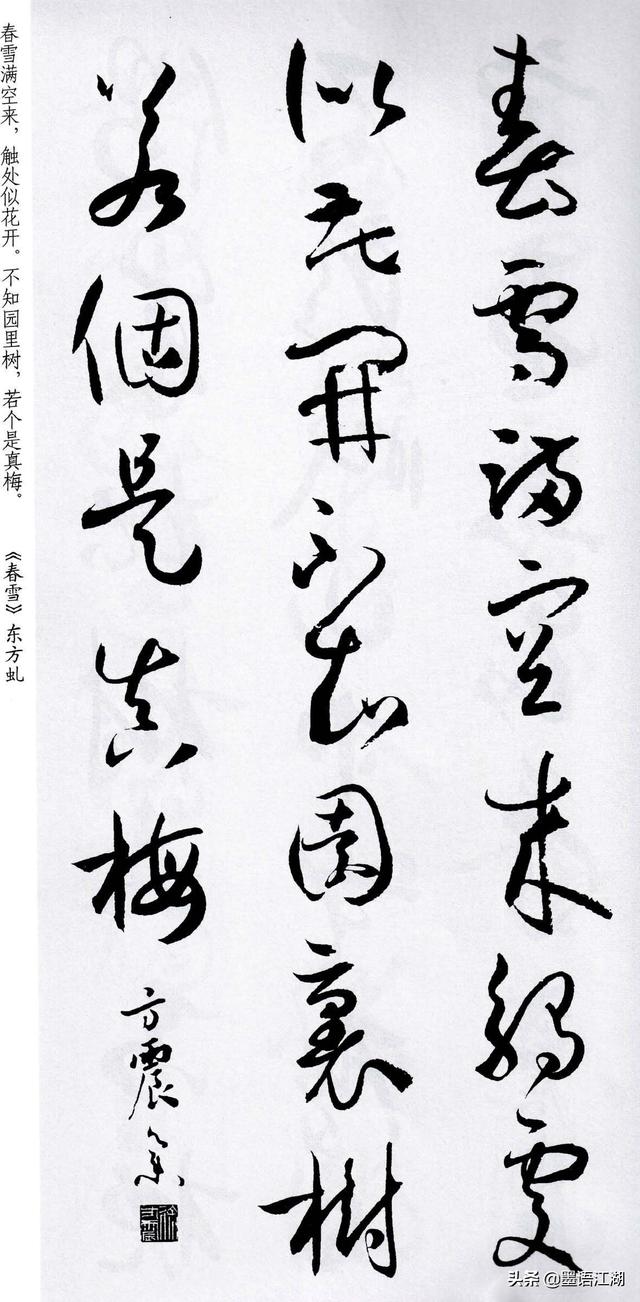 春雪滿空來觸處
似花開不知園裏樹
若個是真梅
方震
春雪满空来，触处似花开。不知园里树，若个是真梅。
《春雪》东方虬
头条 @墨语江湖